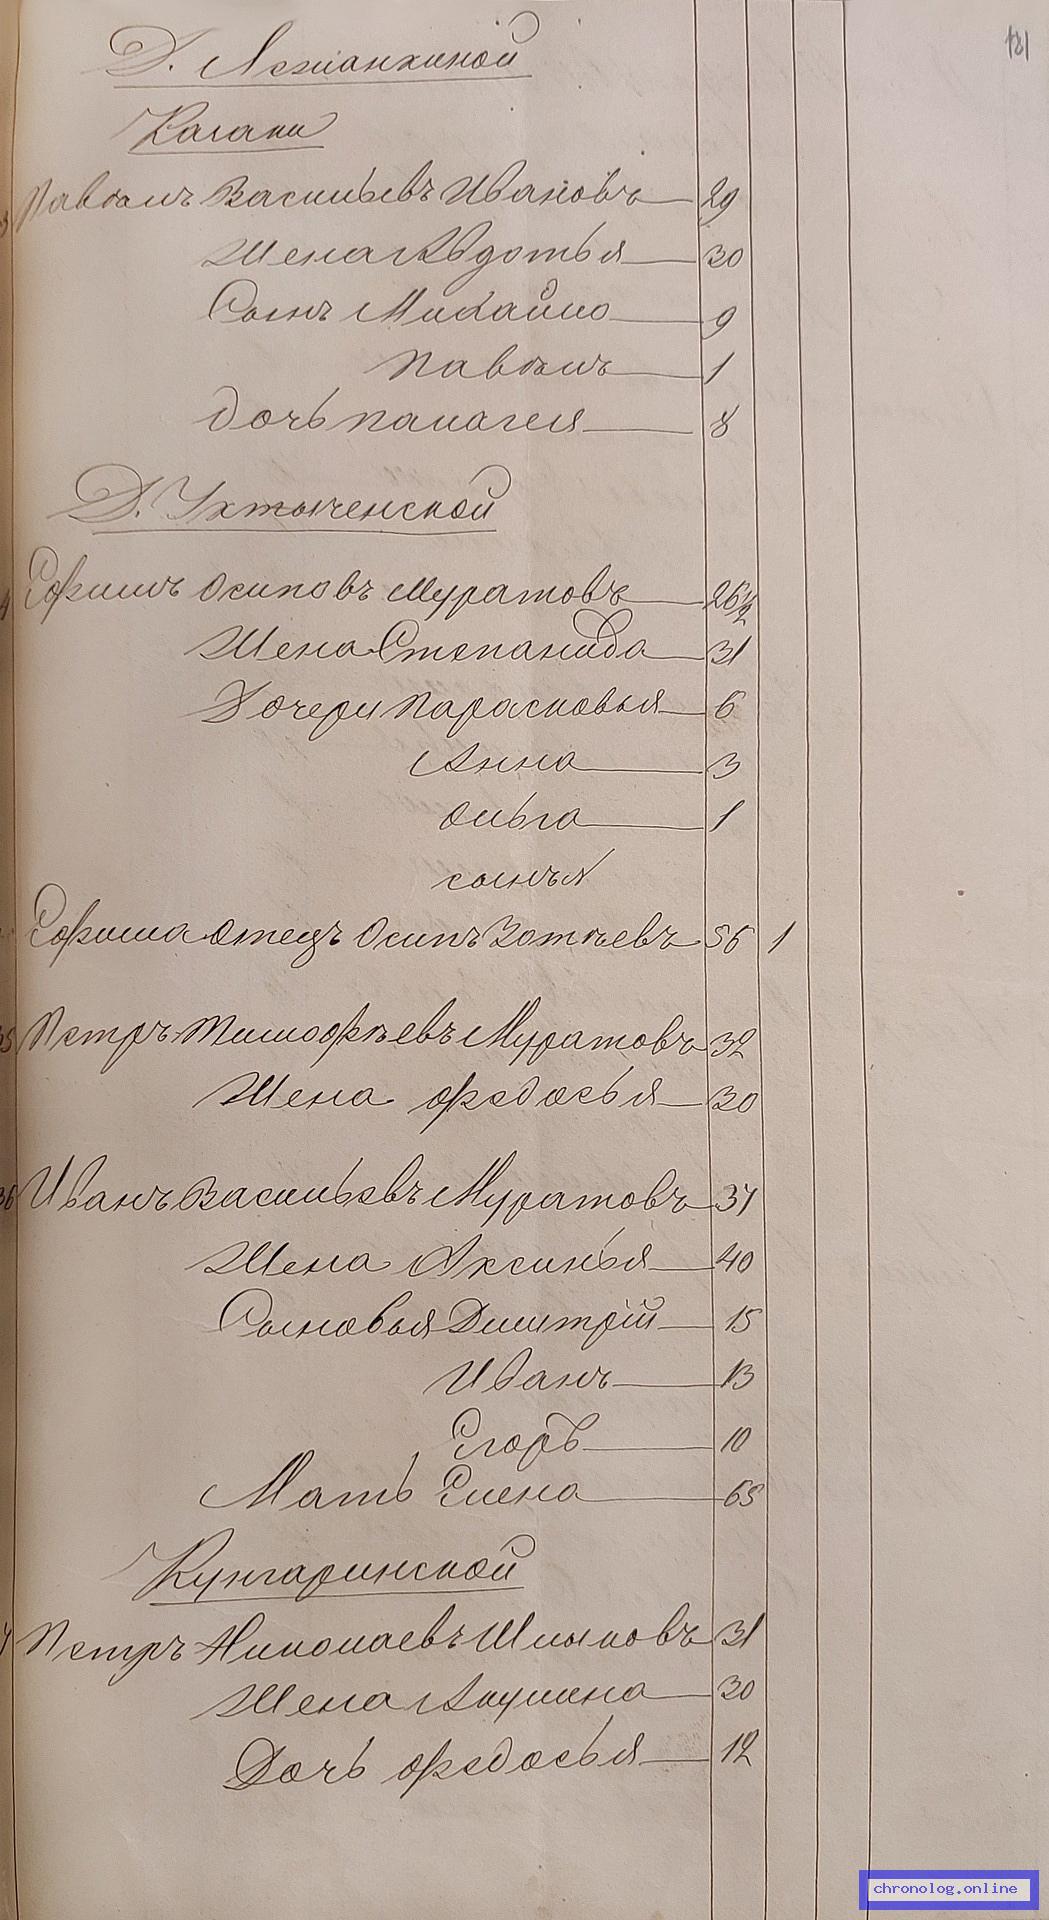 121
Д. Лежанкиной
Кагани
Павелъ Васильевъ Ивановъ 29
Жена Авдотья 30
Сынъ Михайло 9
Павелъ 1
дочь Палагея 8
Д. Ухтыченской
Ефимъ Осиповъ Муратовъ 26 1/2
Жена Степанида 31
Дочери Парасковья 6
Анна 3
Ольга 1
Ефима отецъ Осипъ Зотѣевъ 56 1
35 Петръ Тимофѣевъ Муратовъ 32
Жена Федосья 30
36 Иванъ Васильевъ Муратовъ 37
Жена Аксинья 40
Сыновья Дмитрій 15
Иванъ 13
Егоръ 10
Мать Елена 65
Кунгаринской
Петръ Николаевъ Шлыковъ 31
Жена Акулина 30
Дочь Федосья 12
chronolog.online